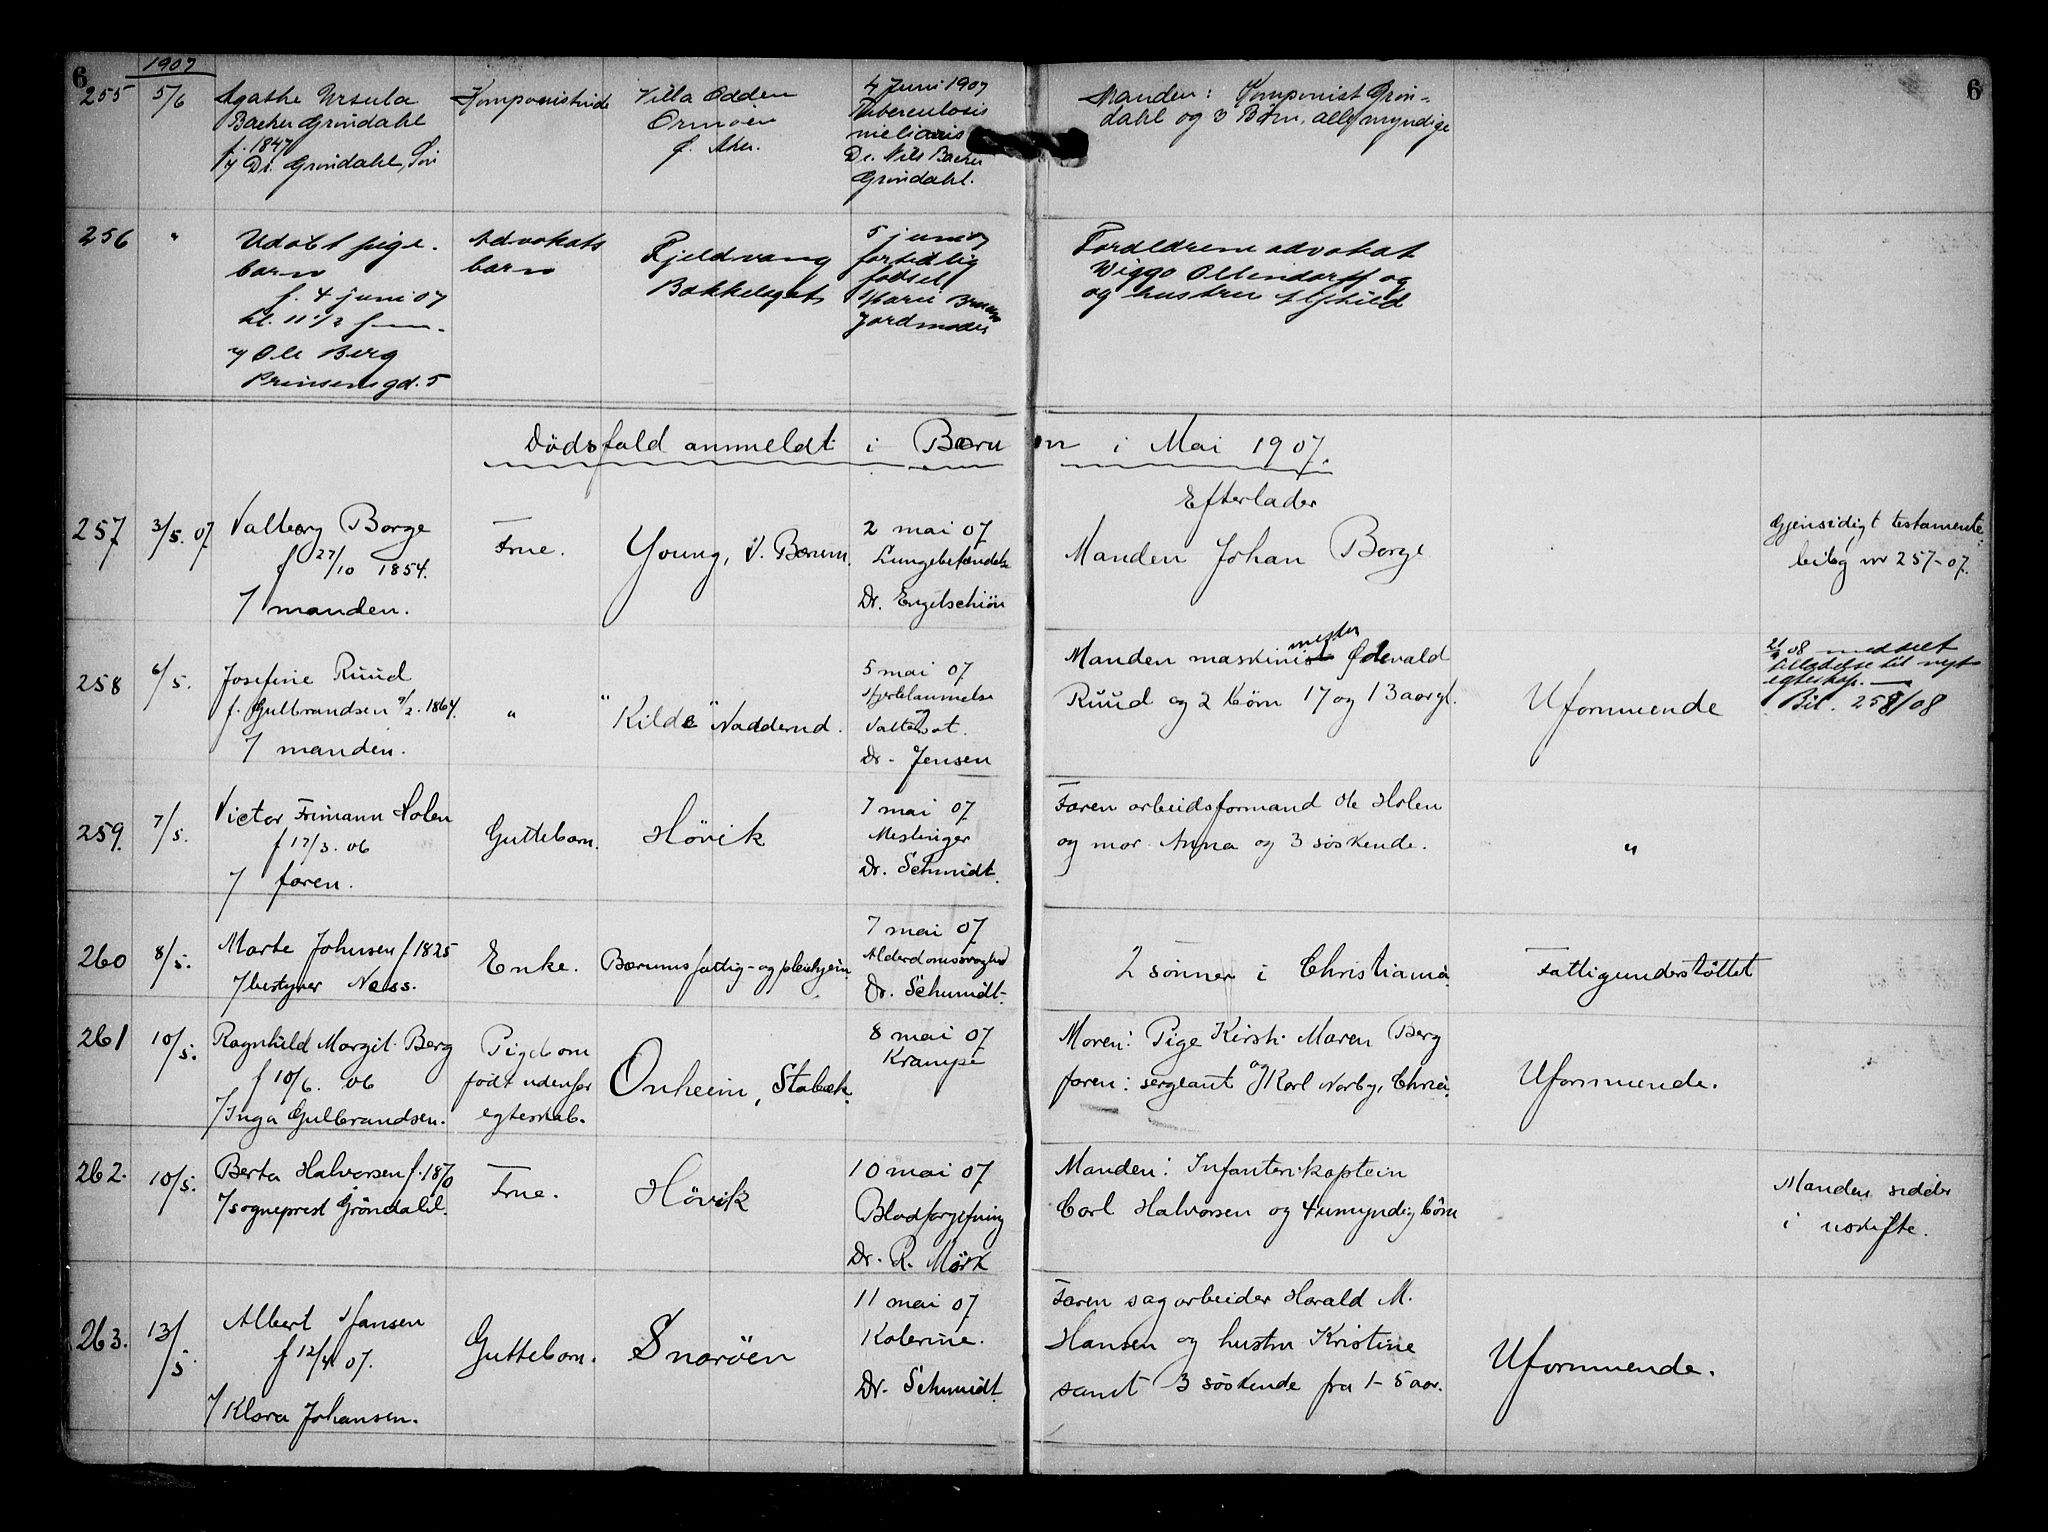 6
1907
6
255
5/6
Agathe Ursula
Backer Grøndahl
f. 1847
v/ Dr. Grøndahl, Søn
Komponistinde
Villa Odden
Ormøen
Ø. Aker.
4 Juni 1907
Tuberculosis
miliaris
Dr. Nils Backer
Grøndahl.
Manden: Komponist Grøn-
dahl og 3 Børn, alle myndige
256
"
Udøbt pige-
barn
f. 4 juni 07
kl. 11 1/2
v/ Ole Berg
Prinsensgd. 5
Advokats
barn
Fjeldvang
Bækkelaget
5 juni 07
fortidlig
fødsel
Marie Bruun
Jordmoder
Forældrene advokat
Wiggo Ollendorff og
og hustru Alfhild
Dödsfald anmeldt i Bærum i Mai 1907.
Efterlader
257
3/5. 07
Valborg Borge
f 27/10 1854.
/ manden.
Frue.
Young, V. Bærum.
2 mai 07
Lungebetændelse
Dr. Engelschiön
Manden Johan Borge
Gjensidigt testamente
bilag nr 257-07.
258
6/5.
Josefine Ruud
f. Gulbrandsen 9/2. 1864.
/ manden.
"
"Kilde" Nadderud.
5 mai 07
Hjertelammelse
og
Vattersot.
Dr. Jensen
Manden maskinmester Ödevald
Ruud og 2 börn 17 og 13 aar gl.
Uformuende
08 meddelt
tilladelse til nyt
egteskap.
Bil. 258/08
259.
7/5.
Victor Frimann Holen
f 17/3. 06
/ faren.
Guttebarn.
Hövik
7 mai 07
Meslinger
Dr. Schmidt.
Faren arbeidsformand Ole Holen
og mor Anna og 3 söskende.
"
260
8/5.
Marte Johnsen f. 1825
/ bestyrer Næss.
Enke.
Bærums fattig- og pleiehjem
7 mai 07
Alderdomssvaghed
Dr. Schmidt.
2 sönner i Christiania.
Fattigunderstöttet
261
10/5.
Ragnhild Margit Berg
f 10/6. 06
/ Inga Gulbrandsen.
Pigebarn
född udenfor
egteskab.
Onheim, Stabæk.
8 mai 07
Krampe
Moren: Pige Kirsti Maren Berg
og
faren: sergeant Karl Norby, Chria.
Uformuende.
262.
10/5.
Berta Halvorsen f. 1870
/ sogneprest Gröndahl.
Frue.
Hövik
10 mai 07
Blodforgiftning
Dr. R. Mörk
Manden: Infanterikaptein
Carl Halvorsen og 4 umyndig börn
Manden sidder
i uskifte.
263.
13/5.
Albert Hansen
f 12/4 07.
/ Klara Johansen.
Guttebarn.
Snaröen
11 mai 07
Kolerine.
Dr. Schmidt.
Faren sagarbeider Harald M.
Hansen og hustru Kristine
samt 3 söskende fra 1-5 aar.
Uformuende.